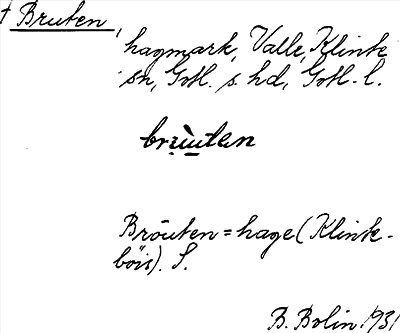 † Bruten,
hagmark, Valle, Klinte
sn, Gotl. s. hd, Gotl. l.
brùuten
Bröuten = hage (Klinte-
böis). S.
B. Bolin 1931